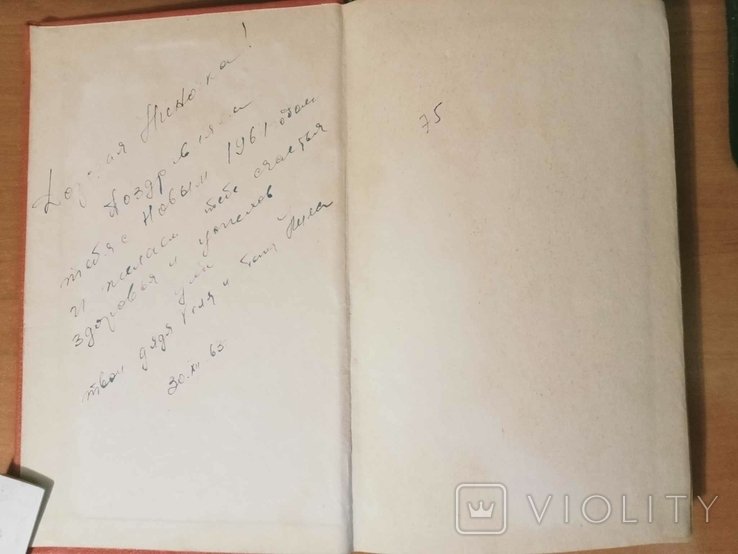 Дорогая Ниночка!
Поздравляем
тебя с Новым 1961 годом
и желаем тебе счастья
здоровья и успехов
твои дядя Коля и тётя
30. XII 63
75
VIOLITY